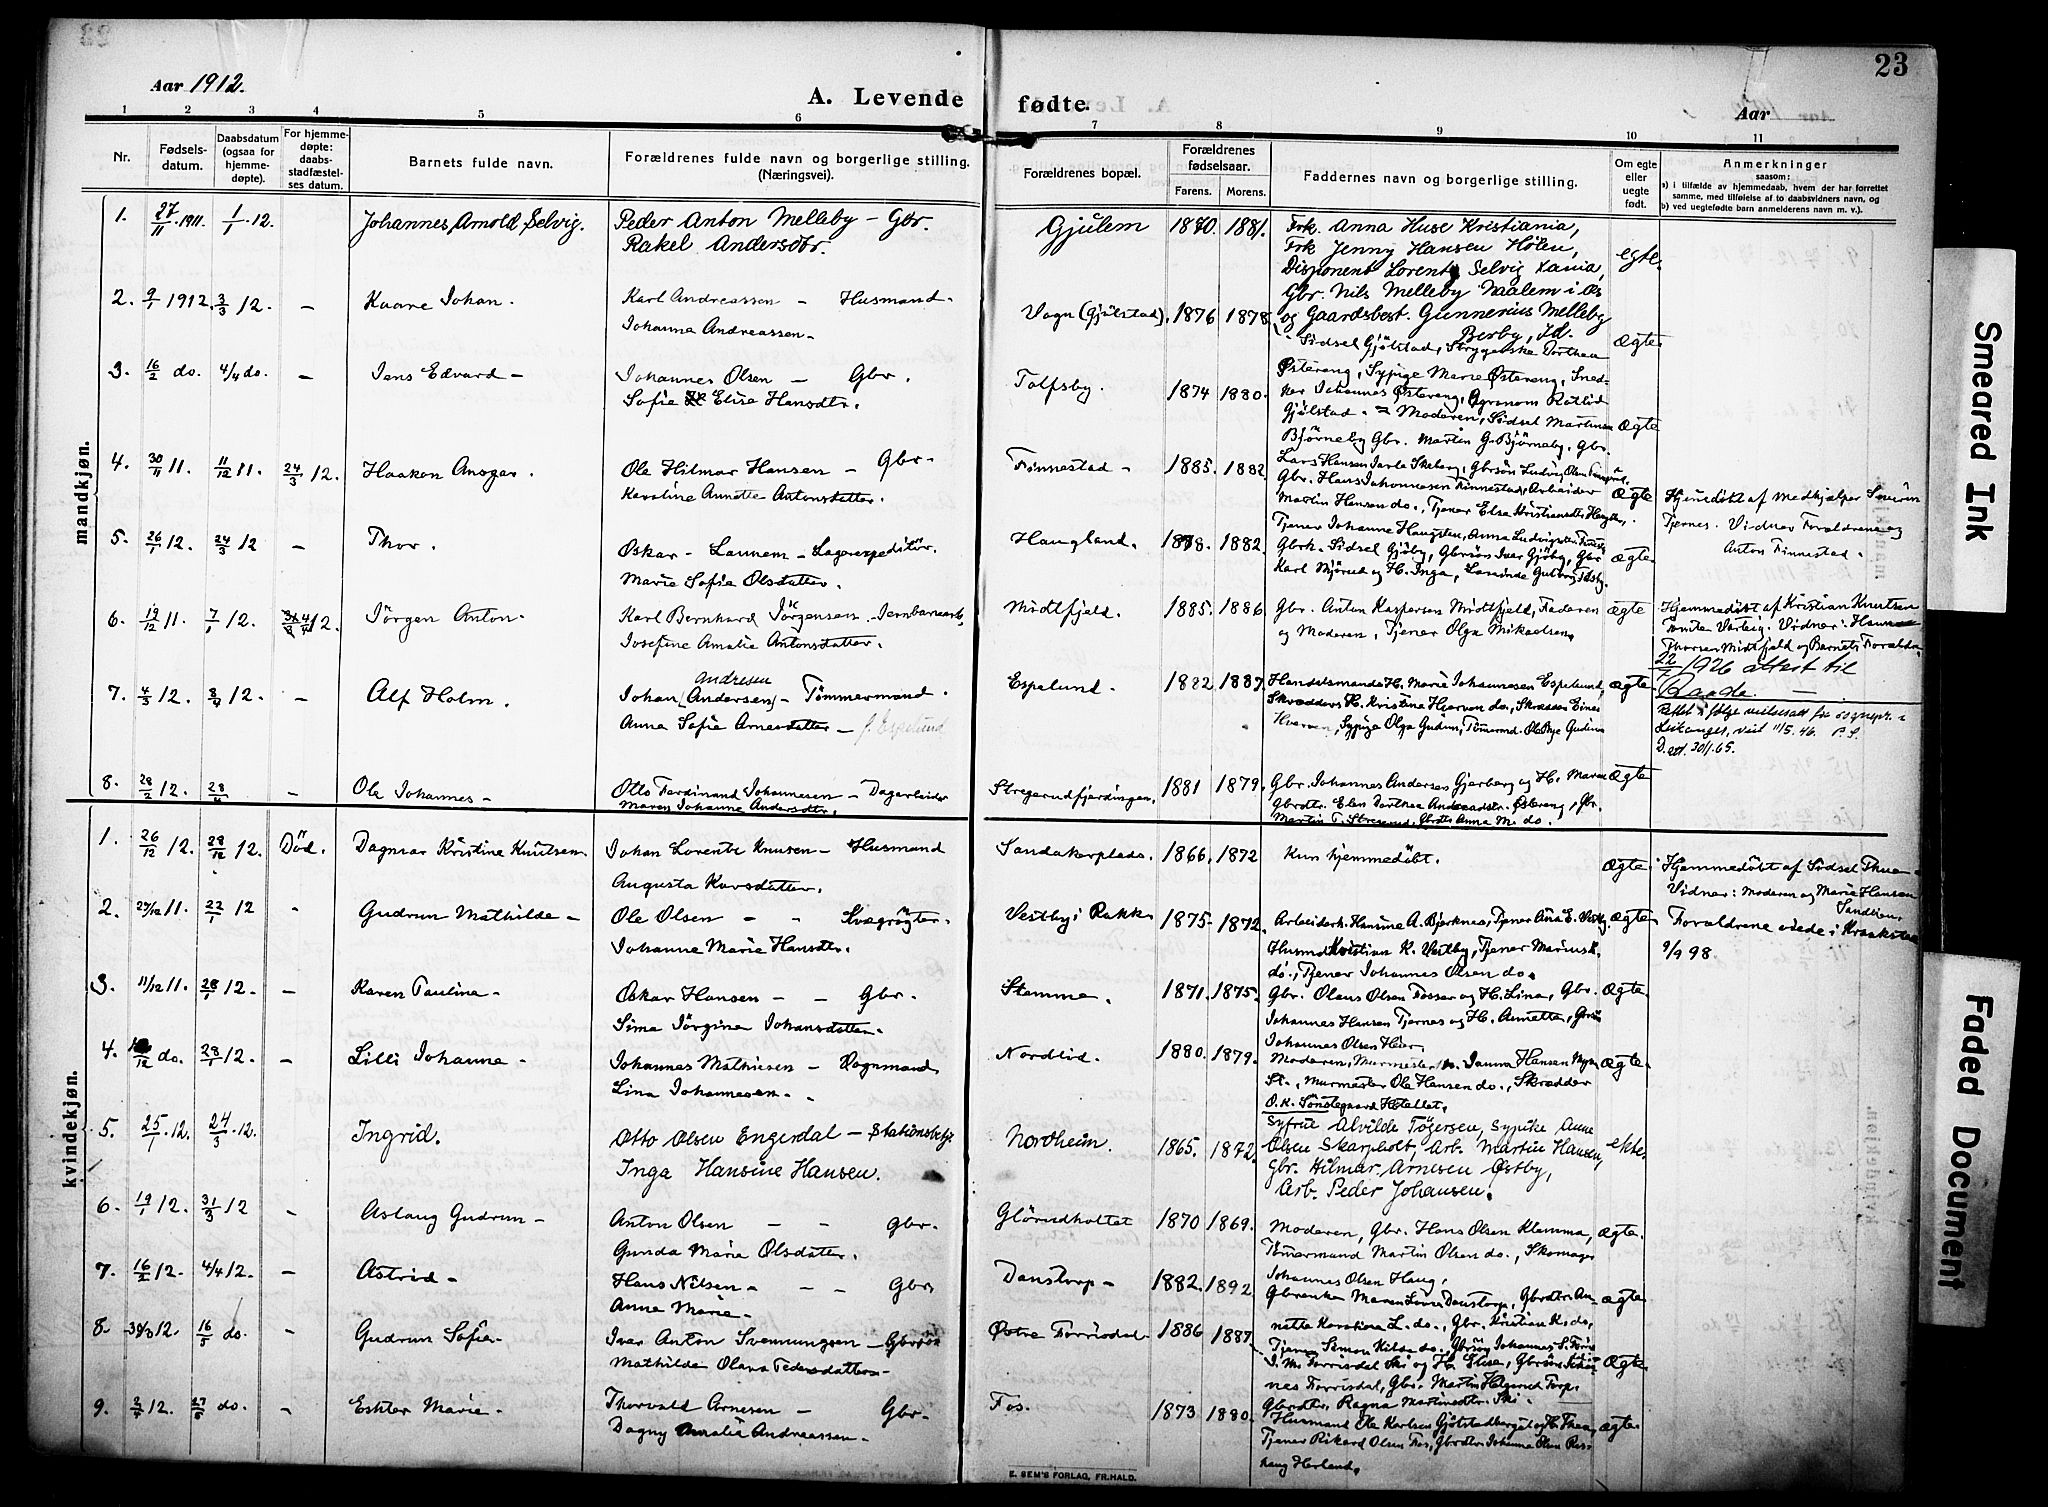 23
Aar 1912.
A. Levende fødte.
Aar
1 2 3 4 5 6 7 8 9 10 11
Nr.
Fødsels-
datum.
Daabsdatum
(ogsaa for
hjemme-
døpte).
For hjemme-
døpte:
daabs-
stadfæstel-
ses datum.
Barnets fulde navn.
Forældrenes fulde navn og borgerlige stilling.
(Næringsvei).
Forældrenes bopæl.
Forældrenes
fødselsaar.
Farens. Morens.
Faddernes navn og borgerlige stilling.
Om egte
eller
uegte
født.
Anmerkninger
saasom:
a) i tilfælde av hjemmedaab, hvem der har forrettet
samme, med tilføielse af to daabsvidners navn, og
b) ved uegtefødte barn anmelderens navn m. v.).
mandkjøn.
1. 27/11 1911. 1/1 12. Johannes Arnold Selvig. Peder Anton Melleby – Gbr. Gjulem 1880. 1881. Frk. Anna Huse Kristiania,
Rakel Andersdtr. Frk Jenny Hansen Hølen, egte.
Disponent Lorentz Selvig Xania,
2. 9/1 1912. 3/3 12. – Kaare Johan. Karl Andreassen – Husmand. Vogn (Gjølstad). 1876 1878. Gbr. Nils Melleby Naalem i Ås
Johanna Andreassen – og Gaardsbest. Gunnerius Melleby
Berby, Id.
Sidsel Gjølstad, Strygerske Dorthea ægte
3. 16/2 do. 4/4 do. – Jens Edvard – Johannes Olsen – Gbr. Tolfsby. 1874 1880. Østereng, Sypige Marie Østereng, Sned-
Sofie Elise Hansdtr. ker Johannes Østereng, Agronom
Gjølstad. – Moderen, Sidsel Martinsen ægte
Bjørneby Gbr. Martin G. Bjørneby, Gbr.
4. 30/11 11. 11/12 11. 24/3 12. Haakon Ansgar. Ole Hilmar Hansen – Gbr. Finnestad – 1885. 1882. Lars Hansen Jarle Skaberg, Gbrsøn Ludvig Olsen
Karoline Annette Antonsdatter. Gbr. Hans Johannesen Finnestad, Arbeider ægte Hjemedøbt af Medhjælper
Martin Hansen do., Tjener Elsa Kristiansdtr. Tjernes. Vidner Forældrene og
Anton Finnestad.
5. 26/1 12. 24/3 12 – Thor. Oskar – Lannem – Lagerexpeditør. Haugland. 1878. 1882. Tjener Johanne Haugsten, Anna Ludvigsten
Marie Sofie Olsdatter. Gbrk. Sidsel Gjøby, Gbrsøn Ivar Gjøby, Gbr ægte
Karl Mjørud og H. Inga,
6. 19/12 11. 7/1 12. 4/4 12. Jørgen Anton. Karl Bernhard Jørgensen. Jernbanearb. Midtfjeld. 1885. 1886 Gbr. Anton Kaspersen Midtfjeld, Faderen ægte Hjemmedøbt af Kristian Knutsen
Josefine Amalie Antonsdatter. og Moderen, Tjener Olga Mikaelsen. Varteig. Vidner: Hanna
Thorsen Midtfjeld og Barnets Forældre
7. 4/3 12. 8/4 12. – Alf Holm. Johan (Andersen) Andresen – Tømmermand. Espelund. 1882 1887. Handelsmands H. Marie Johannesen Espelund, ægte. 22/7 1926 attest til
Raade. –
Anna Sofie Arnesdatter – f. Espelund Skrædders H. Kristine Hjerven do., Skræder Einar
Sypige Olga Gudim, Tømrmd. Ole Bye Gudim
Rettet i følge
11/5. 46. P.S.
30/1.65.
8. 28/2 12. 28/4 – Ole Johannes – Otto Ferdinand Johannesen – Dagarbeider Stregerudfjerdingen. 1881 1879. Gbr. Johannes Andersen Gjerberg og H. Maren ægte
Maren Johanne Andersdtr. Gbrdtr. Elen Dorthea Østereng, Gbr.
Martin T. Stregerud, Gbrdtr. Anna M. do.
kvindekjøn.
1. 26/12 12. 28/12 12. Död. Dagmar Kristine Knutsen. Johan Lorentz Knusen – Husmand Sandakerplads. 1866. 1872 Kun hjemmedøbt. ægte. Hjemmedøbt af Sidsel Thue –
Augusta Karsdatter. Vidner: Moderen og Marie Hansen
2. 27/12 11. 22/1 12 – Gudrun Mathilde – Ole Olsen – – Kvægrøgter. Vestby i Rakk. 1875 1872. Arbeiderh. Hansine A. Bjerknæs, Tjener Anna E. Vestby ægte Forældrene viede i Kraakstad
Johanne Marie Hansdtr. Husmd Kristian K. Vestby, Tjener Marius K. 9/9 98
do., Tjener Johannes Olsen do.
3. 11/12 11. 28/1 12. – Karen Paulina – Oskar Hansen – – Gbr. Stamme. 1871. 1875. Gbr. Olaus Olsen Fosser og H. Lina, Gbr. ægte.
Sima Jørgine Johansdatter – Johannes Hansen Tjernes og H. Annette,
Johannes Olsen Heier.
4. do. 28/1 12. – Lilli Johanne – Johannes Mathiesen – Vognmand Nordlid. 1880. 1879. Moderen, Murmester H. Janna Hansen ægte
Lina Johannesen. – St., Murmester Ole Hansen do., Skrædder
O. K. Sønstegaard Hotellet.
5. 25/1 12. 24/3 12. Ingrid. Otto Olsen Engerdal – Stationsbetj. Nordheim. 1865. 1872. Syfrue Alvilde Tøgersen, Sypike Anne
Inga Hansine Hansen. Olsen Skarpholt, Arb. Martin Hansen, ekte.
Gbr. Hilmar Arnesen Østby,
Arb. Peder Johansen.
6. 19/1 12. 31/3 12 – Aslaug Gudrun – Anton Olsen – – Gbr. Glørudholtet 1870 1869. Moderen, Gbr. Hans Olsen Klemma, ægte.
Gunda Marie Olsdatter. Tømermand Martin Olsen do., Skomager
Johannes Olsen Haug.
7. 16/2 12. 4/4 12. – Astrid – Hans Nilsen – – Gbr. Danstorp – 1882. 1892 Gbrenke Maren Lovise Danstorp, Gbrdtr. An- ægte
Anne Marie – nette Karoline L. do., Gbr. Kristian K. do,
8. 30/3 12. 16/5 do. – Gudrun Sofie – Ivar Anton Svennungsen – Gbrsøn Østre Forrisdal – 1886 1887 Tjener Simon Kilde do.
Mathilde Olava Pedersdatter – Forrisdal Ski og H. Elise, ægte
nes Forrisdal, Gbr. Martin Helgerud Torp.
Gbrdtr. Ragna Martinsdtr. Ski.
9. 2/4 12. 27/5 do. – Esther Marie. Thorvald Arnesen – Gbr – Fos. 1873 1880. Husmand Ole Karlsen Gjølstadberget og H. Thea, ægte
Dagny Amalie Andreassen – Tjener Rikard Olsen Fos, Gbrdtr. Johanna Olsen
haug Herland.
E. SEM'S FORLAG, FR.HALD.
Smeared Ink
Faded Document